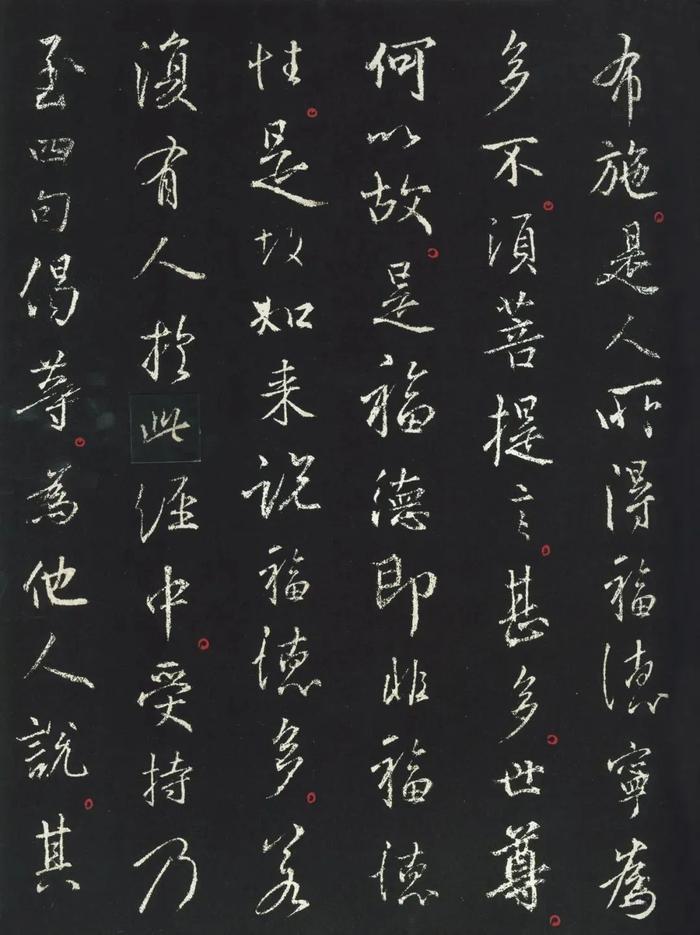 布施是人所得福德寧為
多不須菩提言甚多世尊
何以故是福德即非福德
性是故如来说福德多若
復有人於此經中受持乃
至四句偈等為他人說其